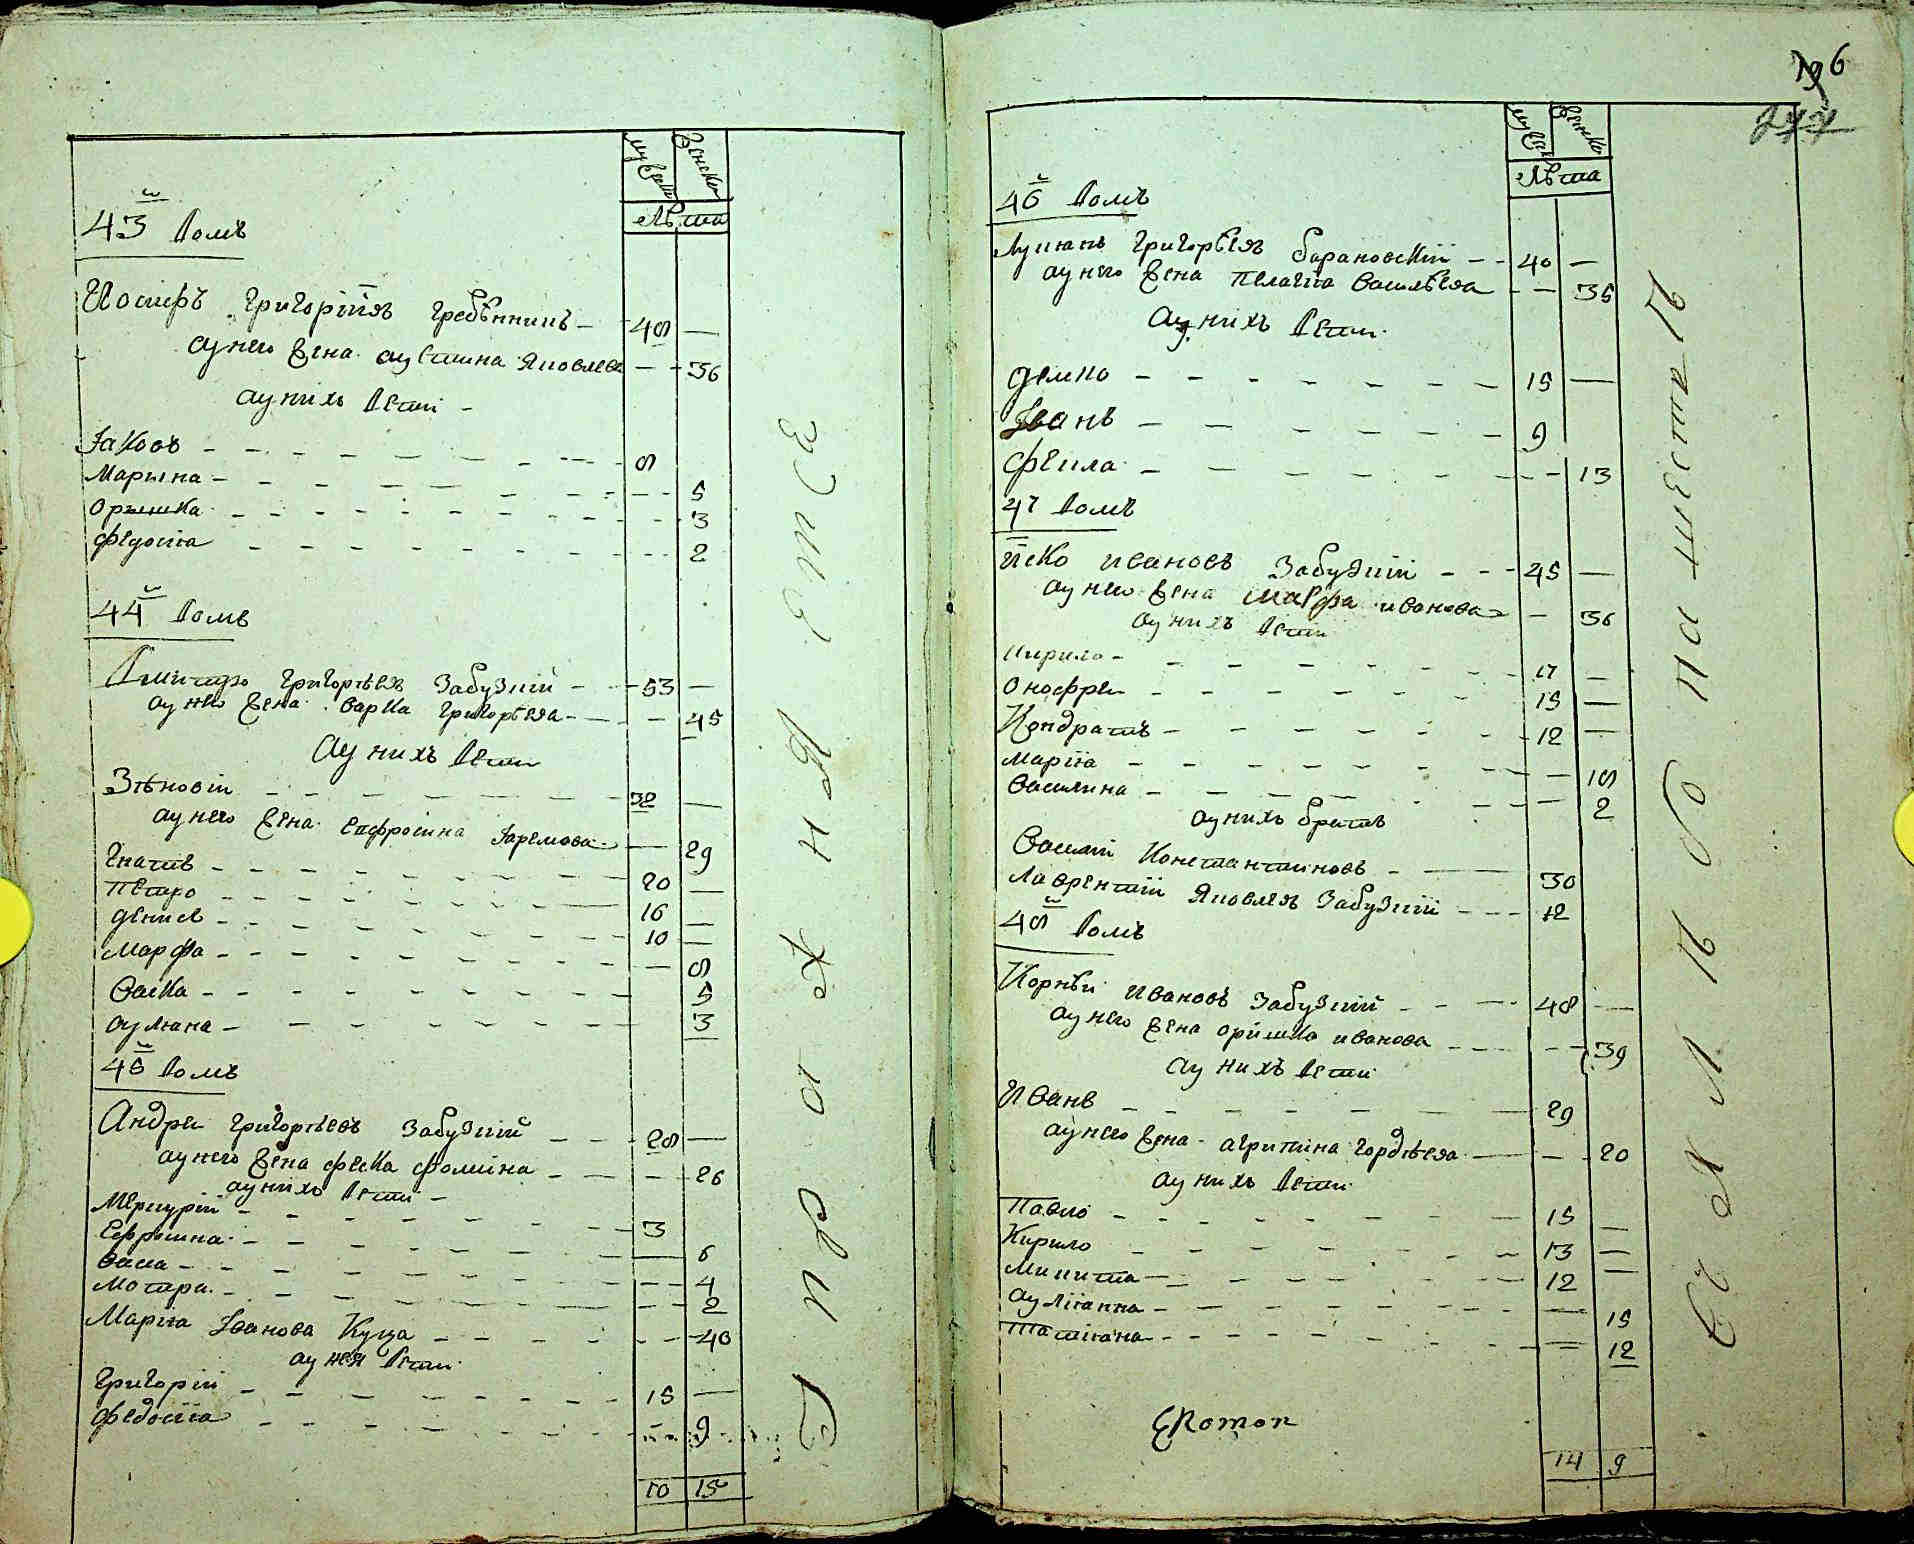 мужеска женска
лѣта
43й домъ
Иосифъ Григорїевъ Гребѣнникъ 48
аунего жена аустина Яковлева 36
аунихъ дети
Iаковъ 8
Марына 5
Орышка 3
Федосїа 2
44й домъ
Дмитро Григорѣевъ Забузкий 53
аунего жена варка Григорѣева 45
аунихъ дети
Зѣновій 32
аунего жена Епфросина Яремова 29
Гнатъ 20
Петро 16
денисъ 10
марфа 8
васка 5
аулиана 3
45й домъ
Андреи Григорѣевъ Забузкий 28
аунего жена феска фомина 26
аунихъ дети
Меркурій 3
Ефросина 6
васса 4
мотра 2
Марїа Iванова Куца 40
аунея дети
Григорій 15
федосїа 9
10 15
196
277
мужеск женска
лѣта
46й домъ
Лукианъ Григорѣевъ барановскій 40
аунего жена Пелагїа васильева 35
аунихъ дети
демко 15
Iванъ 9
фекла 13
47 домъ
Иско ивановъ Забузкий 45
аунего жена Марфа иванова 36
аунихъ дети
кирило 17
онофреи 15
Кондратъ 12
марїа 18
василина 2
аунихъ братъ
василій Константиновъ 30
Лаврентій Яковлевъ Забузкий 12
48й домъ
Корнѣи ивановъ Забузкий 48
аунего жена оришка иванова 39
аунихъ дети
Иванъ 29
аунего жена агрипина гордѣева 20
аунихъ дети
Павло 15
Кирило 13
микита 12
аулїанна 15
Татїана 12
14 9